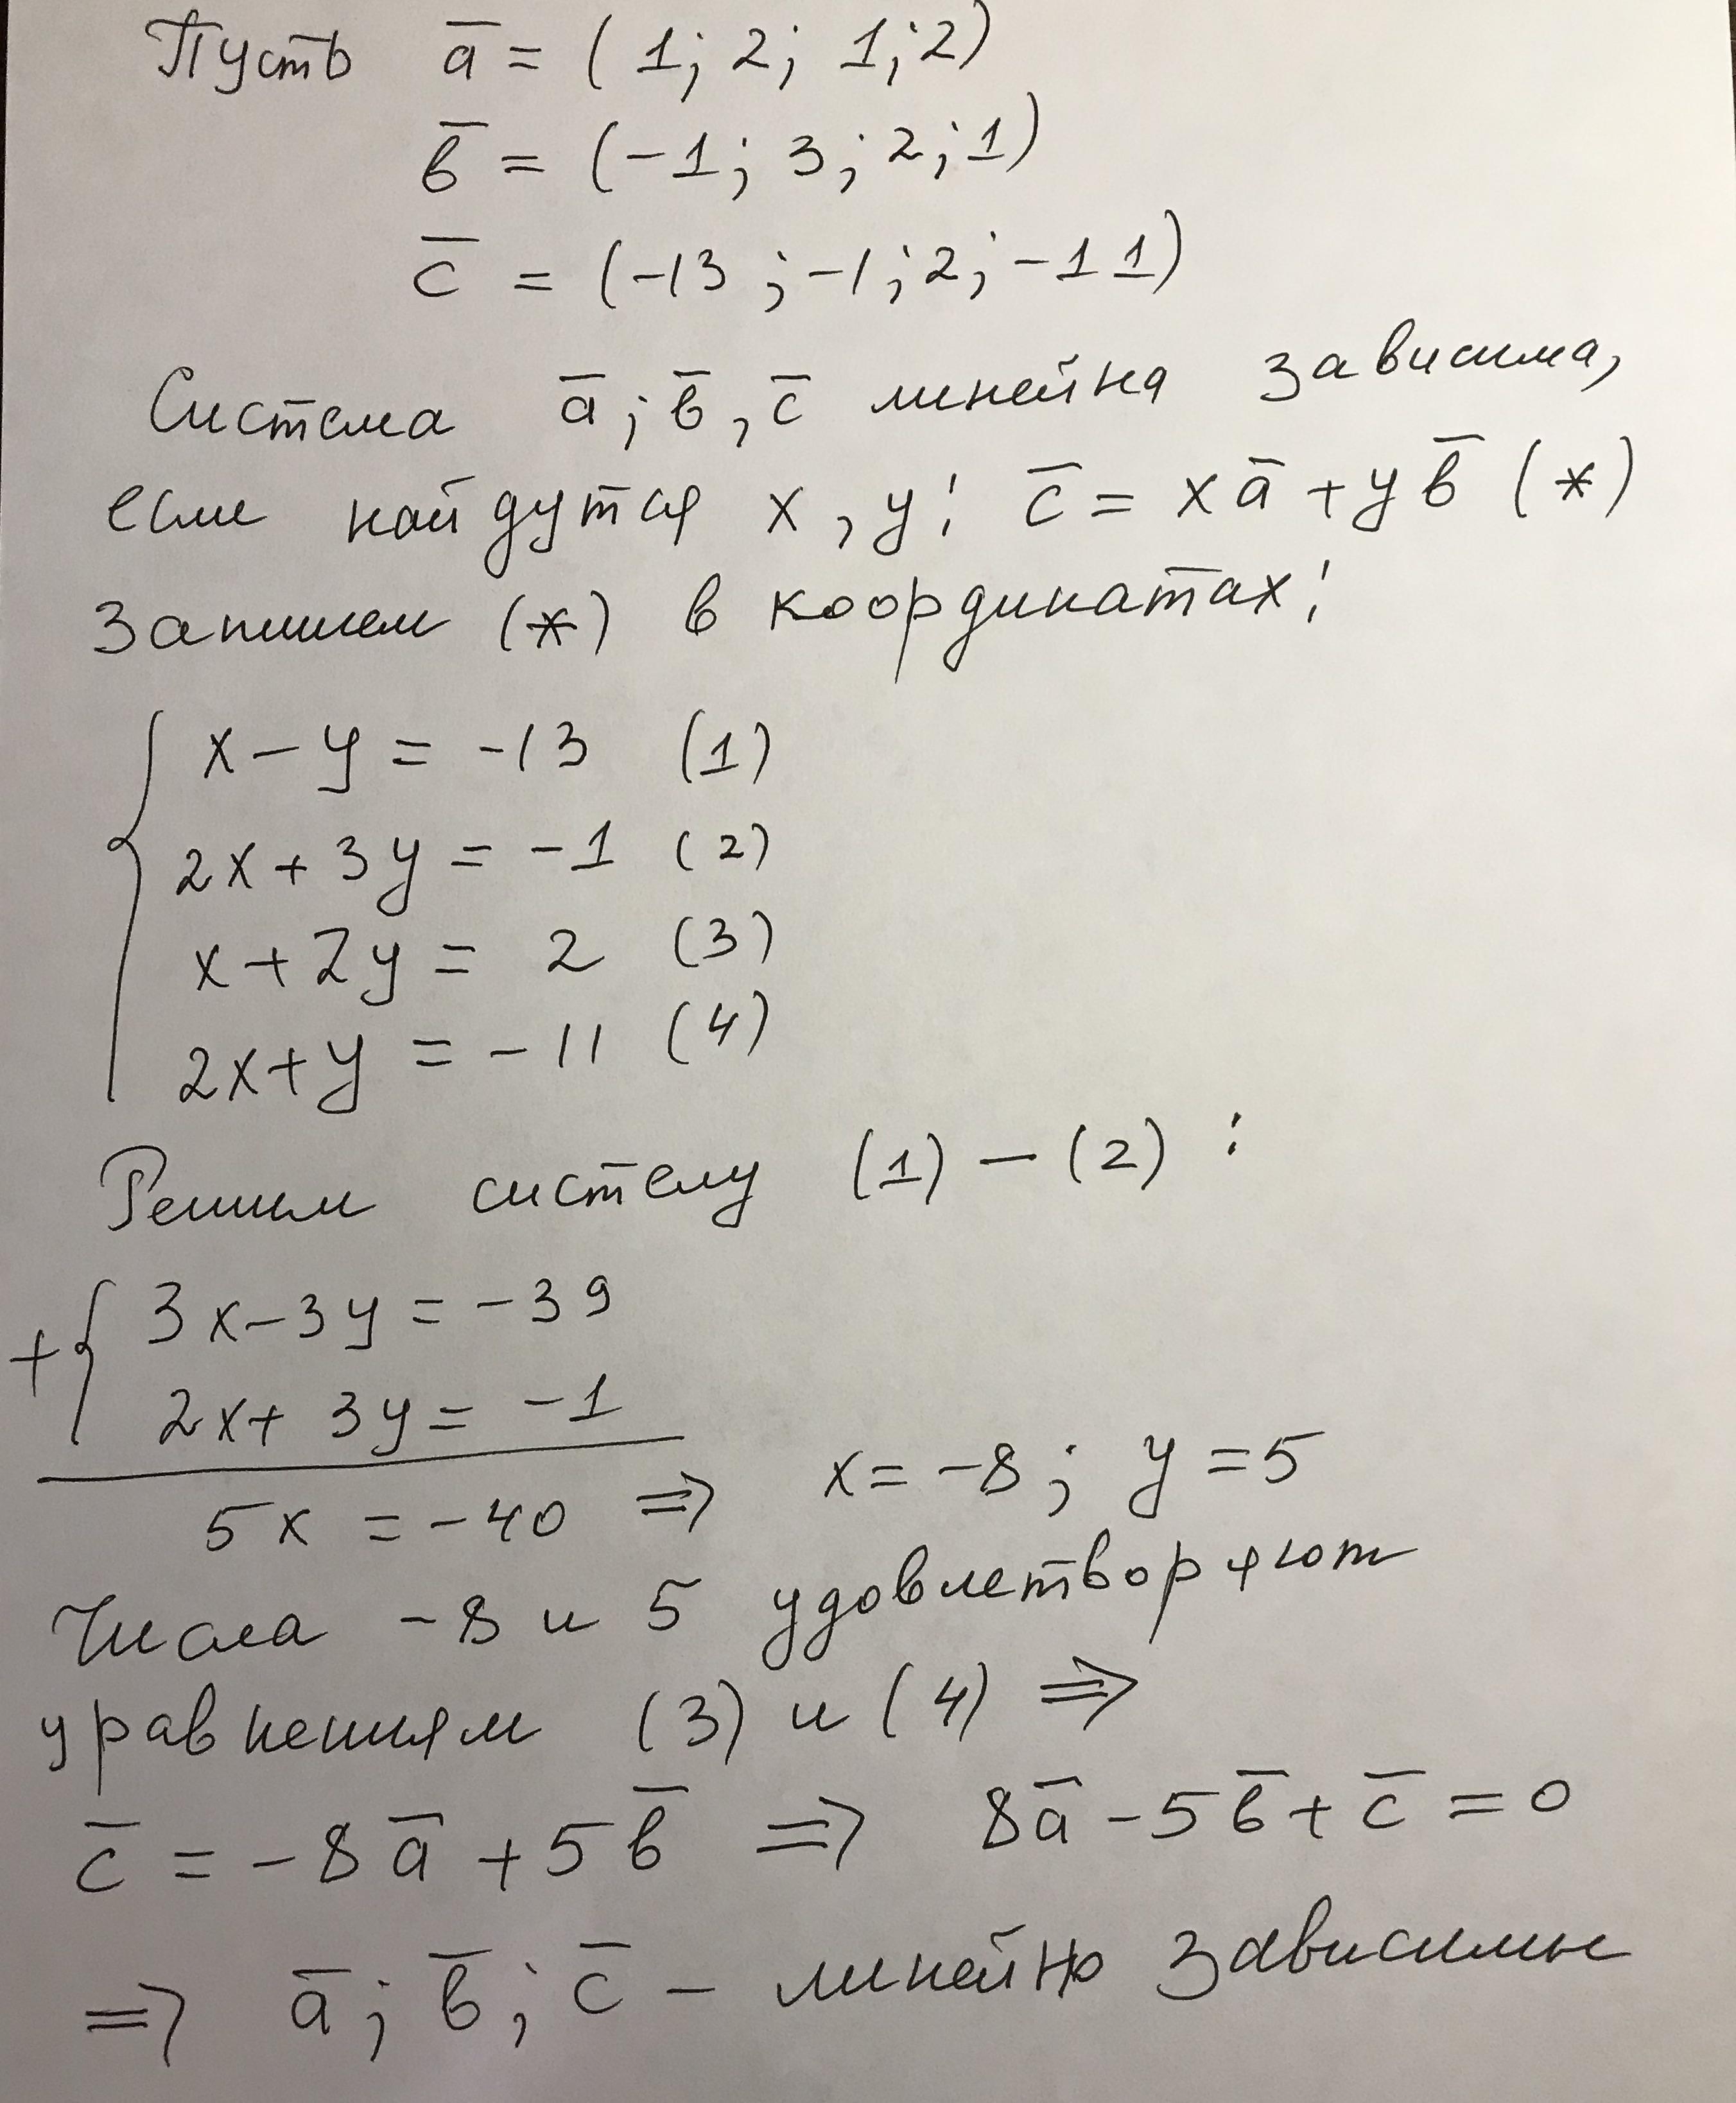 Пусть a̅ = (1; 2; 1; 2)
b̅ = (-1; 3; 2; 1)
c̅ = (-13; -1; 2; -11)
Система a̅; b̅, c̅ линейна зависима,
если найдутся x, y: c̅ = xa̅ + yb̅ (*)
Запишем (*) в координатах:
x - y = -13 (1)
2x + 3y = -1 (2)
x + 2y = 2 (3)
2x + y = -11 (4)
Решим систему (1) - (2) :
+ { 3x - 3y = -39
2x + 3y = -1
5x = -40 => x = -8; y = 5
Числа -8 и 5 удовлетворяют
уравнениям (3) и (4) =>
c̅ = -8a̅ + 5b̅ => 8a̅ - 5b̅ + c̅ = 0
=> a̅; b̅; c̅ - линейно зависимы